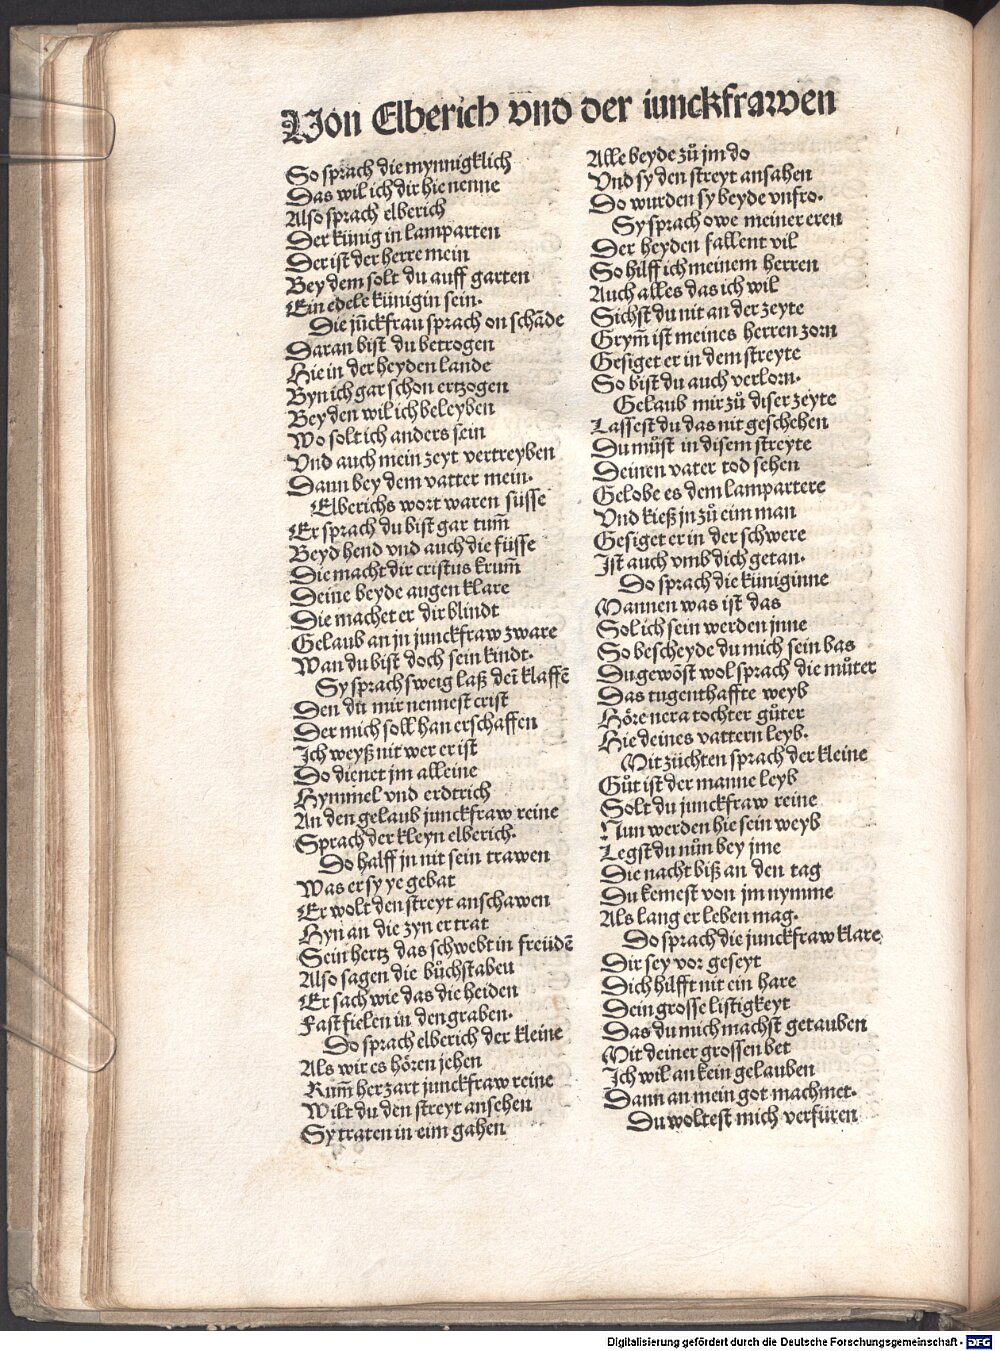 Von Elberich vnd der iunckfrawen
So sprach die mynnigklich
Das wil ich dir hie nenne
Also sprach elberich
Der künig in lamparten
Der ist der herre mein
Bey dem solt du auff garten
Ein edele künigin sein.
Die jūckfrau sprach on schāde
Daran bist du betrogen
Hie in der heyden lande
Byn ich gar schon ertzogen
Bey den wil ich beleyben
Wo solt ich anders sein
Vnd auch mein zeyt vertreyben
Dann bey dem vatter mein.
Elberichs wort waren süsse
Er sprach du bist gar tum̄
Beyd hend vnd auch die füsse
Die macht dir cristus krum̄
Deine beyde augen klare
Die machet er dir blindt
Gelaub an jn junckfraw zware
Wan du bist doch sein kindt.
Sy sprach sweig laß dein̄ klaffē
Den du mir nennest crist
Der mich soll han erschaffen
Ich weyß nit wer er ist
Do dienet jm alleine
Hymmel vnd erdtrich
An den gelaub junckfraw reine
Sprach der kleyn elberich.
Do halff jn nit sein trawen
Was er sy ye gebat
Er wolt den streyt anschawen
Hyn an die zyn er trat
Sein hertz das schwebt in freüdē
Also sagen die bůchstaben
Er sach wie das die heiden
Fast fielen in den graben.
Do sprach elberich der kleine
Als wir es hören jehen
Kum̄ her zart junckfraw reine
Wilt du den streyt ansehen
Sy traten in eim gahen
Alle beyde zů jm do
Vnd sy den streyt ansahen
Do wurden sy beyde vnfro.
Sy sprach owe meiner eren
Der heyden fallent vil
So hilff ich meinem herren
Auch alles das ich wil
Sichst du nit an der zeyte
Grym̄ ist meines herren zorn
Gesiget er in dem streyte
So bist du auch verlorn.
Gelaub mir zů diser zeyte
Lassest du das nit geschehen
Du můst in disem streyte
Deinen vater tod sehen
Gelobe es dem lampartere
Vnd kieß jn zů eim man
Gesiget er in der schwere
Ist auch vmb dich getan.
Do sprach die küniginne
Mannen was ist das
Sol ich sein werden jnne
So bescheyde du mich sein bas
Du gewöst wol sprach die můter
Das tugenthaffte weyb
Höre nera tochter gůter
Hie deines vattern leyb.
Mit züchten sprach der kleine
Gůt ist der manne leyb
Solt du junckfraw reine
Nun werden hie sein weyb
Legst du nůn bey jme
Die nacht biß an den tag
Du kemest von jm nymme
Als lang er leben mag.
Do sprach die junckfraw klare
Dir sey vor geseyt
Dich hilfft nit ein hare
Dein grosse listigkeyt
Das du mich machst getauben
Mit deiner grossen bet
Ich wil an kein gelauben
Dann an mein got machmet.
Du woltest mich verfüren
Digitalisierung gefördert durch die Deutsche Forschungsgemeinschaft - DFG